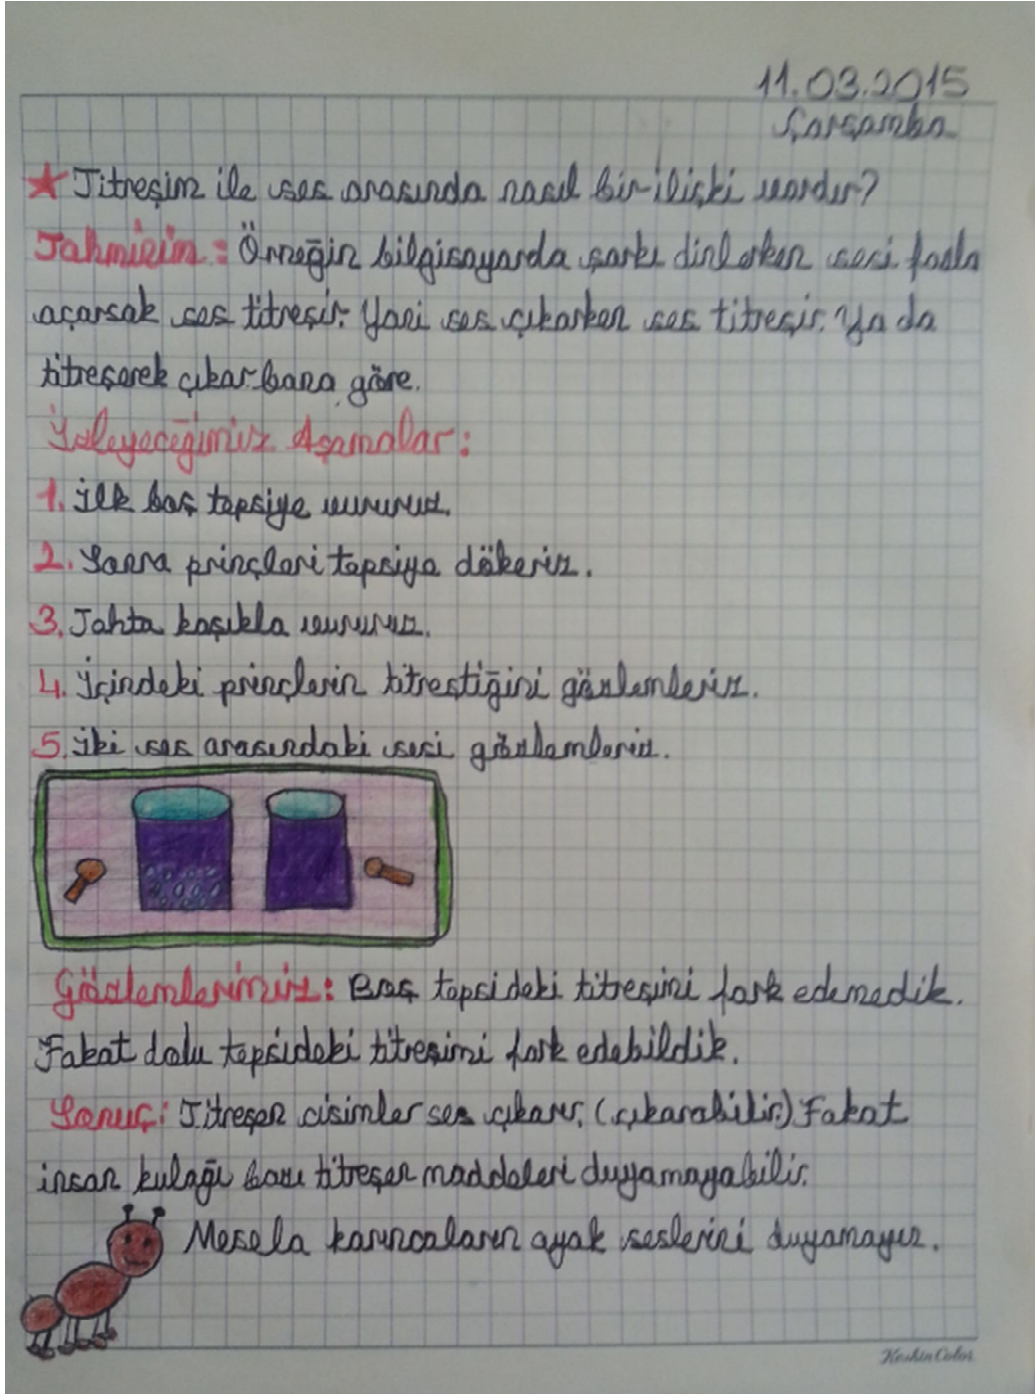 11.03.2015
Çarşamba
Titreşim ile ses arasında nasıl bir ilişki vardır?
Tahminim: Örneğin bilgisayarda şarkı dinlerken sesi fazla
açarsak ses titreşir. Yani ses çıkarken ses titreşir. Ya da
titreşerek çıkar bana göre.
İzleyeceğimiz Aşamalar:
1. İlk boş tepsiye vururuz.
2. Sonra prinçleri tepsiye dökeriz.
3. Tahta kaşıkla vururuz.
4. İçindeki prinçlerin titreştiğini gözlemleriz.
5. İki ses arasındaki sesi gözlemleriz.
Gözlemlerimiz: Boş tepsideki titreşimi fark edemedik.
Fakat dolu tepsideki titreşimi fark edebildik.
Sonuç: Titreşen cisimler ses çıkarır. (çıkarabilir.) Fakat
insan kulağı bazı titreşen maddeleri duyamayabilir.
Mesela karıncaların ayak seslerini duyamayız.
KeskinColor